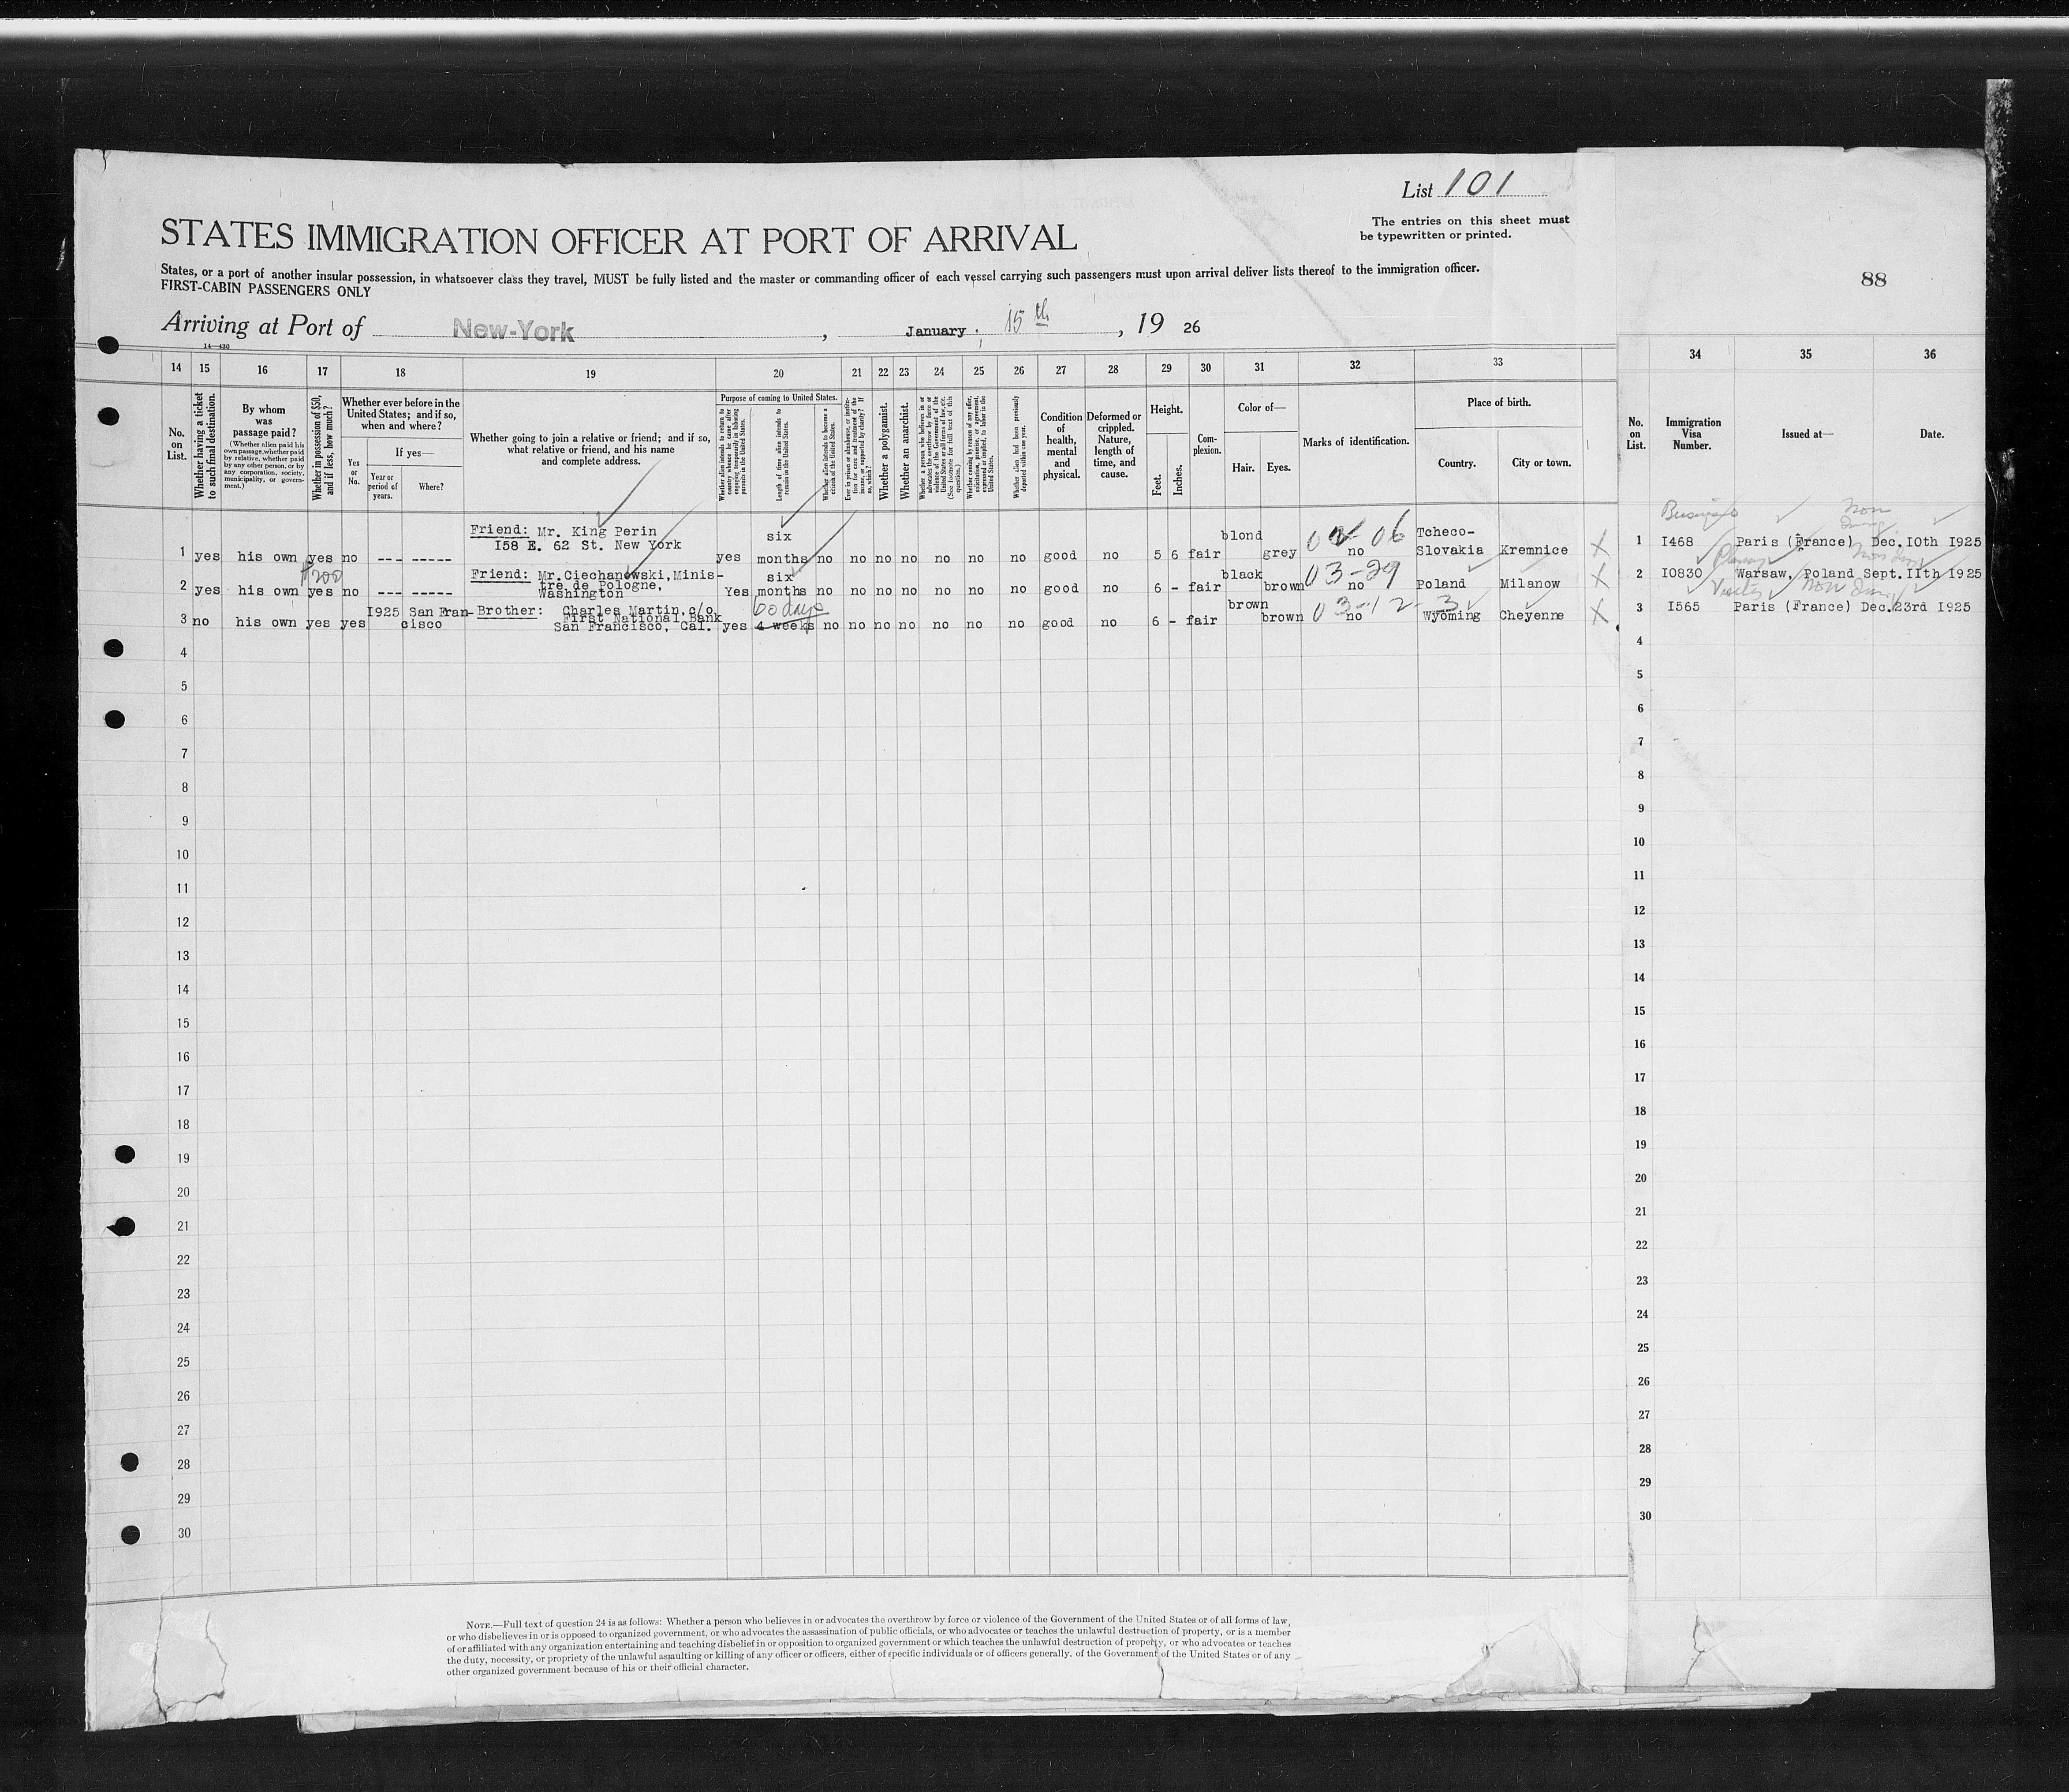 List 101
The entries on this sheet must
be typewritten or printed.
STATES IMMIGRATION OFFICER AT PORT OF ARRIVAL
States, or a port of another insular possession, in whatsoever class they travel, MUST be fully listed and the master or commanding officer of each vessel carrying such passengers must upon arrival deliver lists thereof to the immigration officer.
FIRST-CABIN PASSENGERS ONLY
88
Arriving at Port of New-York, January. 15th, 19 26
14—430
14 15 16 17 18 19 20 21 22 23 24 25 26 27 28 29 30 31 32 33 34 35 36
No. on List.
Whether having a ticket to such final destination.
By whom was passage paid?
(Whether alien paid his own passage, whether paid by relative, whether paid by any other person, or by any corporation, society, municipality, or government.)
Whether in possession of $50, and if less, how much?
Whether ever before in the United States; and if so, when and where?
Yes or No.
If yes—
Year or period of years.
Where?
Whether going to join a relative or friend; and if so, what relative or friend, and his name and complete address.
Purpose of coming to United States.
Whether alien intends to return to country whence he came after engaging temporarily in laboring pursuits in the United States.
Length of time alien intends to remain in the United States.
Whether alien intends to become a citizen of the United States.
Ever in prison or almshouse, or institution for care and treatment of the insane, or supported by charity? If so, which?
Whether a polygamist.
Whether an anarchist.
Whether a person who believes in or advocates the overthrow by force or violence of the Government of the United States or all forms of law, etc. (See footnote for full text of this question.)
Whether coming by reason of any offer, solicitation, promise, or agreement, expressed or implied, to labor in the United States.
Whether alien had been previously deported within one year.
Condition of health, mental and physical.
Deformed or crippled. Nature, length of time, and cause.
Height.
Feet. Inches.
Complexion.
Color of—
Hair. Eyes.
Marks of identification.
Place of birth.
Country. City or town.
No. on List.
Immigration Visa Number.
Issued at—
Date.
Business Non Immig.
Friend: Mr. King Perin
I58 E. 62 St. New York
1 yes his own yes no --- ----- yes six months no no no no no no no good no 5 6 fair blond grey 04-06 no Tcheco-Slovakia Kremnice X 1 I468 Paris (France) Dec.10th I925
$200
Friend: Mr.Ciechanowski,Minis-
tre de Pologne,
Washington
2 yes his own yes no --- ----- Yes six months no no no no no no no good no 6 - fair black brown 03-29 no Poland Milanow X 2 I0830 Warsaw, Poland Sept.IIth I925
Visitor Non Immig
Brother: Charles Martin,c/o
First National Bank
San Francisco, Cal.
3 no his own yes yes I925 San Fran-cisco yes 4 weeks 60 days no no no no no no no good no 6 - fair brown brown 03-12-3 no Wyoming Cheyenne X 3 I565 Paris (France) Dec.23rd I925
4 4
5 5
6 6
7 7
8 8
9 9
10 10
11 11
12 12
13 13
14 14
15 15
16 16
17 17
18 18
19 19
20 20
21 21
22 22
23 23
24 24
25 25
26 26
27 27
28 28
29 29
30 30
NOTE.—Full text of question 24 is as follows: Whether a person who believes in or advocates the overthrow by force or violence of the Government of the United States or of all forms of law,
or who disbelieves in or is opposed to organized government, or who advocates the assassination of public officials, or who advocates or teaches the unlawful destruction of property, or is a member
of or affiliated with any organization entertaining and teaching disbelief in or opposition to organized government or which teaches the unlawful destruction of property, or who advocates or teaches
the duty, necessity, or propriety of the unlawful assaulting or killing of any officer or officers, either of specific individuals or of officers generally, of the Government of the United States or of any
other organized government because of his or their official character.